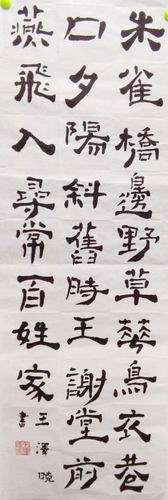 朱雀橋邊野草華烏衣巷
口夕陽斜舊時王謝堂前
燕飛入尋常百姓家
王澤曉書